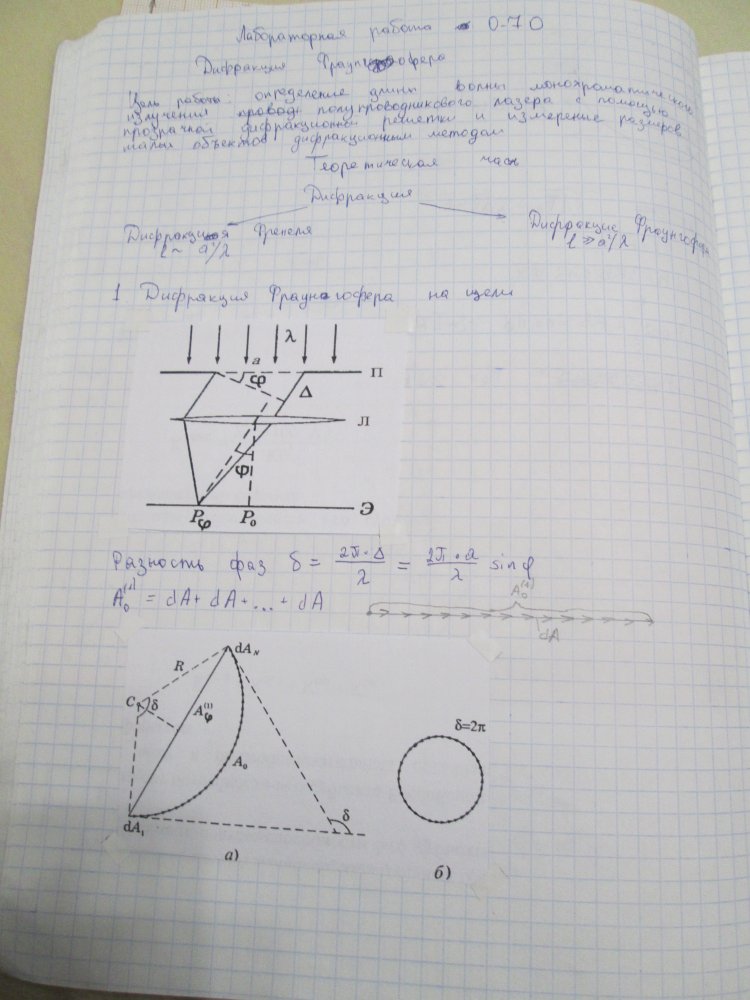 Лабораторная работа О-70
Дифракция Фраунгофера
Цель работы: определение длины волны монохроматического
излучения полупроводникового лазера с помощью
прозрачной дифракционной решетки и измерение размеров
малых объектов дифракционным методом
Теоретическая часть
Дифракция
Дифракция Френеля
l ~ a²/λ
Дифракция Фраунгофера
l ≫ a²/λ
1 Дифракция Фраунгофера на щели
λ
a
φ
П
Δ
Л
φ
Pφ P₀ Э
Разность фаз δ = 2π·Δ/λ = 2π·a/λ sin φ
A₀⁽¹⁾ = dA + dA + ... + dA
A₀⁽¹⁾
dA
dA_N
R
C δ
Aφ⁽¹⁾
A₀
δ=2π
dA₁
δ
а)
б)